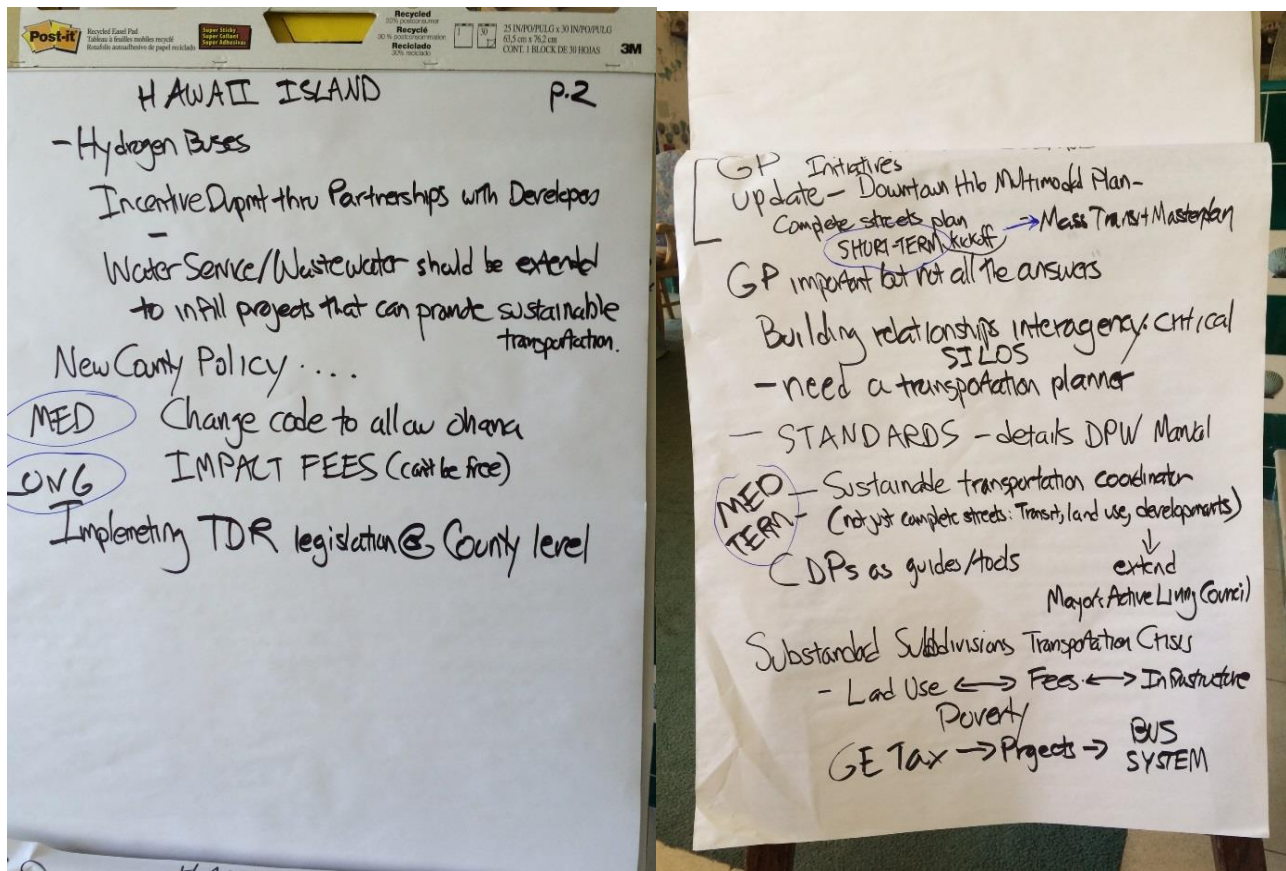 Post-it
Recycled Easel Pad
Tableau à feuilles mobiles recyclé
Rotafolio autoadhesivo de papel reciclado
Super Sticky
Super Collant
Super Adhesivas
Recycled
30% postconsumer
Recyclé
30 % postconsommation
Reciclado
30% reciclado
1
30
25 IN/PO/PULG x 30 IN/PO/PULG
63,5 cm x 76,2 cm
CONT. 1 BLOCK DE 30 HOJAS
3M
HAWAII ISLAND p.2
- Hydrogen Buses
Incentive Dvpmt thru Partnerships with Developers
-
Water Service/Wastewater should be extended
to infill projects that can promote sustainable
transportation.
New County Policy ....
MED Change code to allow ohana
LONG IMPACT FEES (can't be free)
Implemeting TDR legislation @ County level
GP Initiatives
Update - Downtown Hilo Multimodal Plan -
Complete streets plan
SHORT-TERM kickoff → Mass Transit Masterplan
GP important but not all the answers
Building relationships interagency: critical
SILOS
- need a transportation planner
- STANDARDS - details DPW Manual
MED TERM
- Sustainable transportation coordinator
- (not just complete streets: Transit, land use, developments)
↓
CDPs as guides/tools extend
Mayor's Active Living Council)
Substandad Subdivisions Transportation Crisis
- Land Use ↔ Fees ↔ Infrastructure
Poverty
GE Tax → Projects → BUS SYSTEM